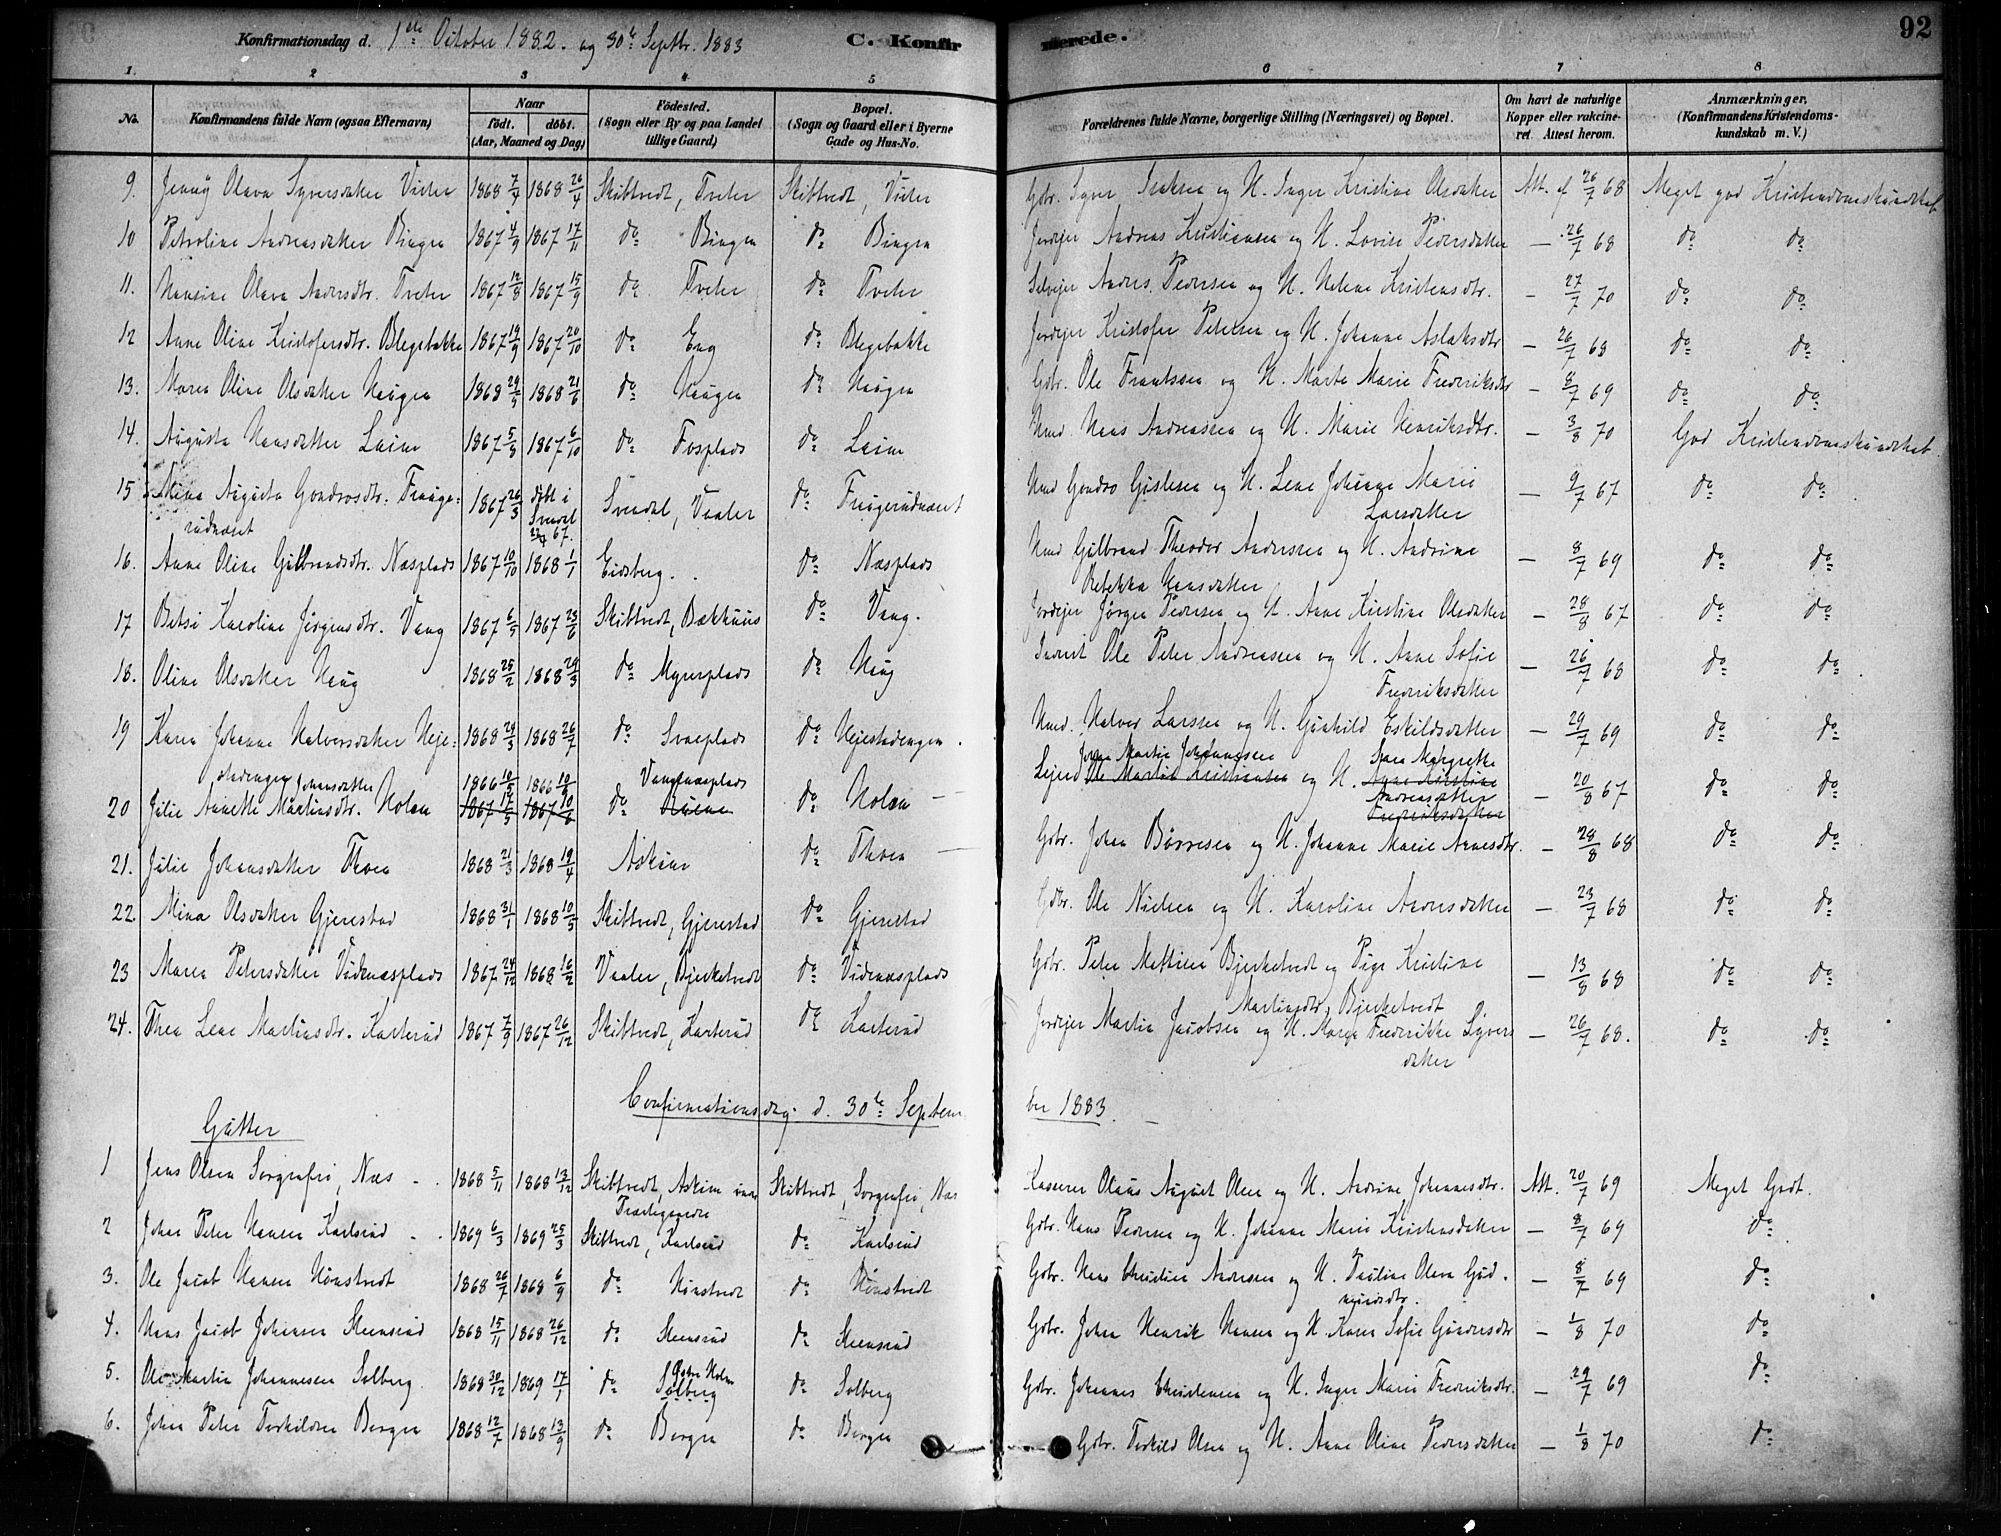 Konfirmationsdag d. 1ste October 1882. og 30te Septbr. 1883 C. Konfirmerede. 92
1. 2 3 4 5 6 7 8
No. Konfirmandens fulde Navn (ogsaa Efternavn) Naar födt. döbt. (Aar, Maaned og Dag) Födested. (Sogn eller By og paa Landet tillige Gaard) Bopæl. (Sogn og Gaard eller i Byerne Gade og Hus-No. Forældrenes fulde Navne, borgerlige Stilling (Næringsvei) og Bopæl. Om havt de naturlige Kopper eller vakcineret. Attest herom. Anmærkninger. (Konfirmandens Kristendomskundskab m. V.)
9. Jenny Olava Syversdatter Vister 1868 7/4 1868 26/4 Skibtvedt, Tveter Skibtvedt, Vister Gbr. Syver Isaksen og H. Inger Kristine Olsdatter Att. af 26/7 68 Meget god Kristendomskundskab
10 Petroline Andreasdatter Bingen 1867 4/9 1867 17/11 do Bingen do Bingen Jordejer Andreas Kristiansen og H. Lovise Pedersdatter — 26/7 68 do do
11. Hansine Olava Andersdtr. Tveter 1867 12/8 1867 15/9 do Tveter do Tveter Selvejer Anders Pedersen og H. Helene Kristensdtr. — 27/7 70 do do
12 Anne Oline Kristofersdtr. Blegebakke 1867 19/9 1867 20/10 do Eng do Blegebakke Jordejer Kristofer Petersen og H. Johanne Aslaksdtr — 26/7 68 do do
13. Maren Oline Olsdatter Haugen 1868 29/3 1868 21/6 do Haugen do Haugen Gbr. Ole Frantssen og H. Marte Marie Fredriksdtr — 8/7 69 do do
14. Augusta Hansdatter Laine 1867 5/9 1867 6/10 do Fosplads do Laine Hmd. Hans Andreassen og H. Marie Henriksdtr. — 3/8 70 God Kristendomskundskab.
15 Mina Augusta Gondrosdtr. Frøige- 1867 26/3 døbt i Svindal 22/4 67. Svindal, Vaaler do Frøigerudnæret Hmd Gondro Gislesen og H. Lene Johanne Marie — 9/7 67 do do
rudnæret Larsdatter
16. Anne Oline Gulbrandsdtr. Næsplads 1867 10/10 1868 1/1 Eidsberg. do Næsplads Hmd Gulbrand Theodor Andersen og H. Andrine — 8/7 69 do do
Rebekka Hansdatter
17 Betsi Karoline Jørgensdtr. Vang 1867 6/5 1867 23/6 Skibtvedt, Bækkhuus do Vang. Jordejer Jørgen Pedersen og H. Anne Kristine Olsdatter — 28/8 67 do do
18. Oline Olsdatter Haug 1868 25/2 1868 29/3 do Myrerplads do Haug Inderst Ole Peter Andreassen og H. Anne Sofie — 26/7 68 do do
Fredriksdatter
19 Karen Johanne Halversdatter Heje- 1868 24/3 1868 26/7 do Svaeplads do Hejestadengen. Hmd. Halver Larssen og H. Gunhild Eskildsdatter — 29/7 69 do do
stadengen Johansdatter 1866 10/5 1866 10/6 Vangsnæsplads Johan Martin Johannessen Sara Margrethe
20 Julie Annette Martinsdtr. Holen 1867 17/5 1867 10/6 do do Holen Lejend. Ole Martin Kristiansen og H. Anne Kristine — 20/8 67 do do
Andreasdatter
Fredriksdatter
21. Julie Johansdatter Thoen 1868 21/3 1868 19/4 Askim do Thoen Gbr. Johan Børresen og H. Johanne Marie Annesdtr. — 28/8 68 do do
22. Mina Olsdatter Gjerestad 1868 31/1 1868 10/5 Skibtvedt, Gjerestad do Gjerestad Gbr. Ole Nielsen og H. Karoline Andersdatter — 23/7 68 do do
23 Maren Petersdatter Vidnæsplads 1867 24/12 1868 16/2 Vaaler, Bjerketvedt do Vidnæsplads Gbr. Peter Mathisen Bjerketvedt og Pige Kristine — 13/8 68 do do
Martinsdtr. Bjerketvedt
24. Thea Lene Martinsdtr. Karterud 1867 7/9 1867 26/12 Skibtvedt, Karterud do Karterud Jordejer Martin Jacobsen og H. Maren Fredrikke Syvers — 26/7 68. do do
datter
Confirmationsdag. d. 30te September 1883.
Gutter
1 Jens Olsen Sorgenfri, Næs 1868 5/11 1868 13/12 Skibtvedt, Askim Skibtvedt, Sorgenfri, Næs Kasserer Olaus August Olsen og H. Andrine Johannesdtr. Att. 20/7 69 Meget Godt.
Præstegaarden
2 Johan Peter Hansen Karlsrud 1869 6/3 1869 25/3 Skibtvedt, Karlsrud do Karlsrud Gbr. Hans Pedersen og H. Johanne Marie Kristensdatter — 8/7 69 do
3. Ole Jacob Hansen Hønstvedt 1868 26/7 1868 6/9 do Hønstvedt do Hønstvedt Gbr. Hans Christian Andersen og H. Pauline Olava Gud- — 8/7 69 do
mundsdtr.
4. Hans Jacob Johansen Steensrud 1868 15/11 1868 26/12 do Steensrud do Steensrud Gbr. Johan Henrik Hansen og H. Karen Sofie Gundersdtr — 1/8 70 do
5. Ole Martin Johannesen Solberg. 1868 30/12 1869 17/1 do Østre Holm Solberg do Solberg Gbr. Johannes Christensen og H. Inger Marie Fredriksdtr. — 29/7 69 do
6. Johan Peter Torkildsen Bergen 1868 12/7 1868 13/9 do Bergen do Bergen Gbr. Torkild Olsen og H. Anne Oline Pedersdatter — 1/8 70 do